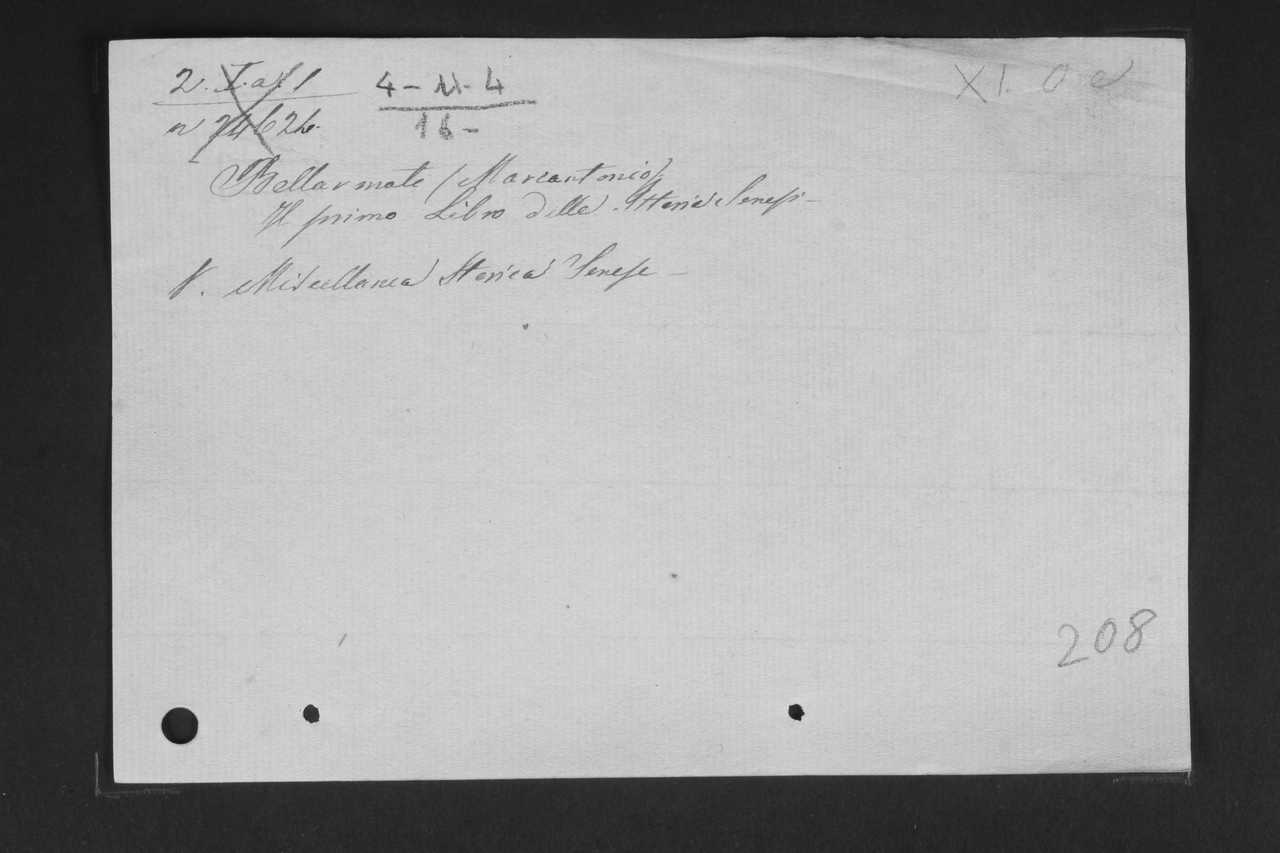 4 - 11. 4
16 -
XI.
Bellarmate (Marcantonio)
Il primo Libro delle Storie Senesi -
V. Miscellanea Storica Senese -
208